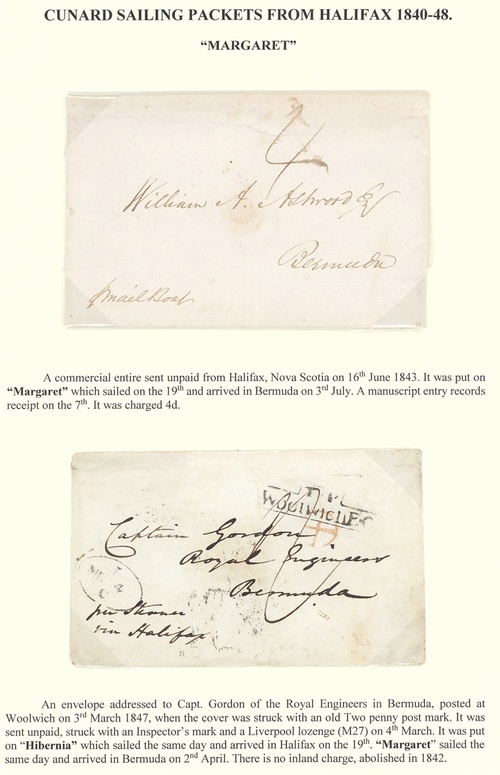 CUNARD SAILING PACKETS FROM HALIFAX 1840-48.
“MARGARET”
4
William A. Ashwood Esq
Bermuda
p mail Boat
A commercial entire sent unpaid from Halifax, Nova Scotia on 16th June 1843. It was put on
“Margaret” which sailed on the 19th and arrived in Bermuda on 3rd July. A manuscript entry records
receipt on the 7th. It was charged 4d.
Woolwich
Captain Gordon
Royal Engineers
Bermuda
per Steamer
via Halifax
An envelope addressed to Capt. Gordon of the Royal Engineers in Bermuda, posted at
Woolwich on 3rd March 1847, when the cover was struck with an old Two penny post mark. It was
sent unpaid, struck with an Inspector’s mark and a Liverpool lozenge (M27) on 4th March. It was put
on “Hibernia” which sailed the same day and arrived in Halifax on the 19th. “Margaret” sailed the
same day and arrived in Bermuda on 2nd April. There is no inland charge, abolished in 1842.